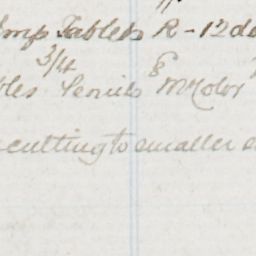 Tablets R - 12 do
3/4 &
les Pencils McColor
cutting to smaller